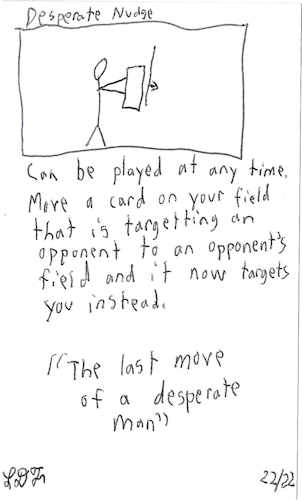 Desperate Nudge
Can be played at any time.
Move a card on your field
that is targetting an
opponent to an opponent's
field and it now targets
you instead.
"The last move
of a desperate
man"
22/22